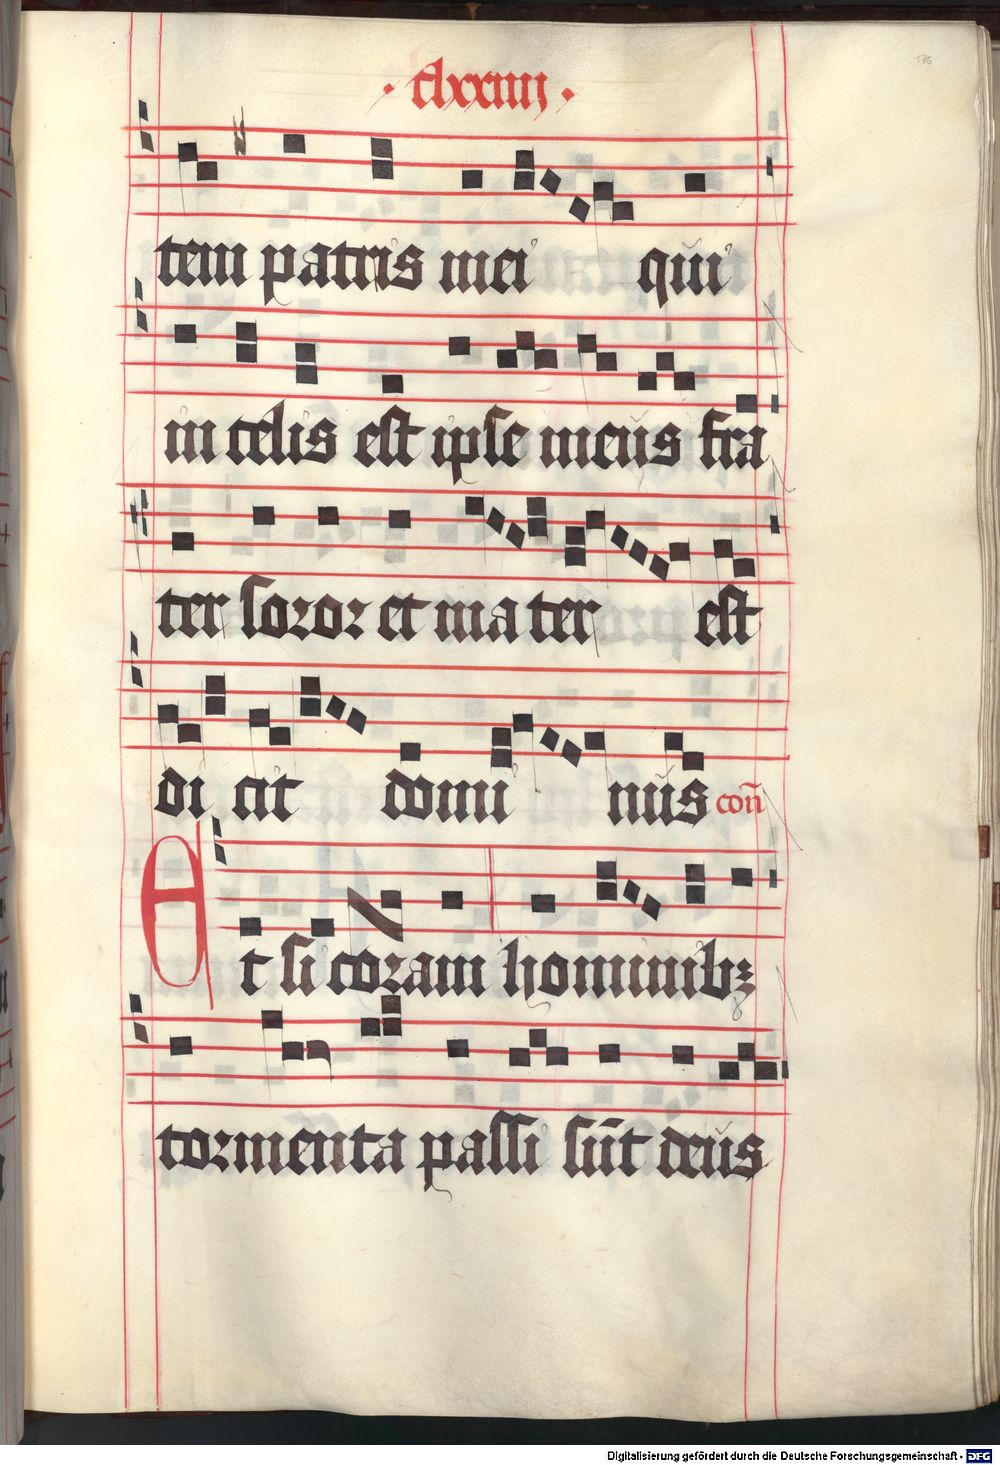 · clxxiiij ·
176
tem patris mei qui
in celis est ipse meus fra
ter soror et ma ter est
di cit domi nus con̄
Et si coram hominibꝫ
tormenta passi su̅t deus
Digitalisierung gefördert durch die Deutsche Forschungsgemeinschaft · DFG